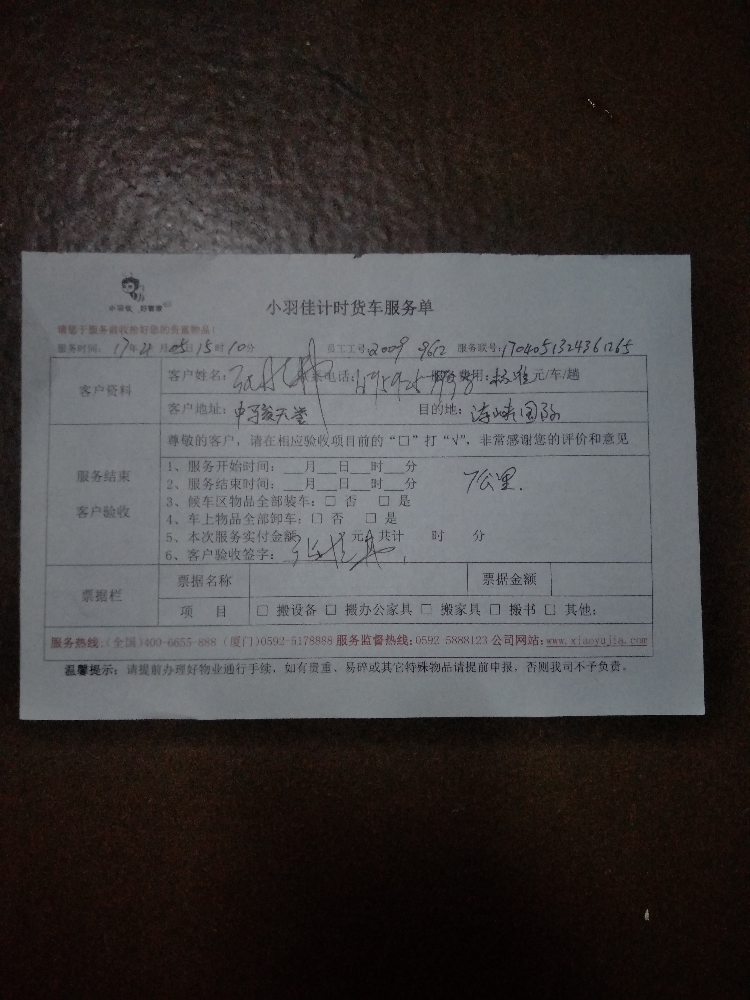 小羽佳 好管家
小羽佳计时货车服务单
请您于服务前收拾好您的贵重物品！
服务时间： 17年4月05日15时10分 员工工号2009 9612 服务联号：1704051324361265
客户资料
客户姓名： 联系电话： 服务费用：标准元/车/趟
客户地址：中骏天誉 目的地：海峡国际
尊敬的客户，请在相应验收项目前的“□”打“√”，非常感谢您的评价和意见
服务结束
客户验收
1、服务开始时间：___月___日___时___分
2、服务结束时间：___月___日___时___分
7公里.
3、候车区物品全部装车：□ 否 □ 是
4、车上物品全部卸车：□ 否 □ 是
5、本次服务实付金额 元，共计 时 分
6、客户验收签字：
票据栏
票据名称 票据金额
项 目 □ 搬设备 □ 搬办公家具 □ 搬家具 □ 搬书 □ 其他：
服务热线：（全国）400-6655-888（厦门）0592-5178888 服务监督热线：0592-5888123 公司网站：www.xiaoyujia.com
温馨提示：请提前办理好物业通行手续，如有贵重、易碎或其它特殊物品请提前申报，否则我司不予负责。